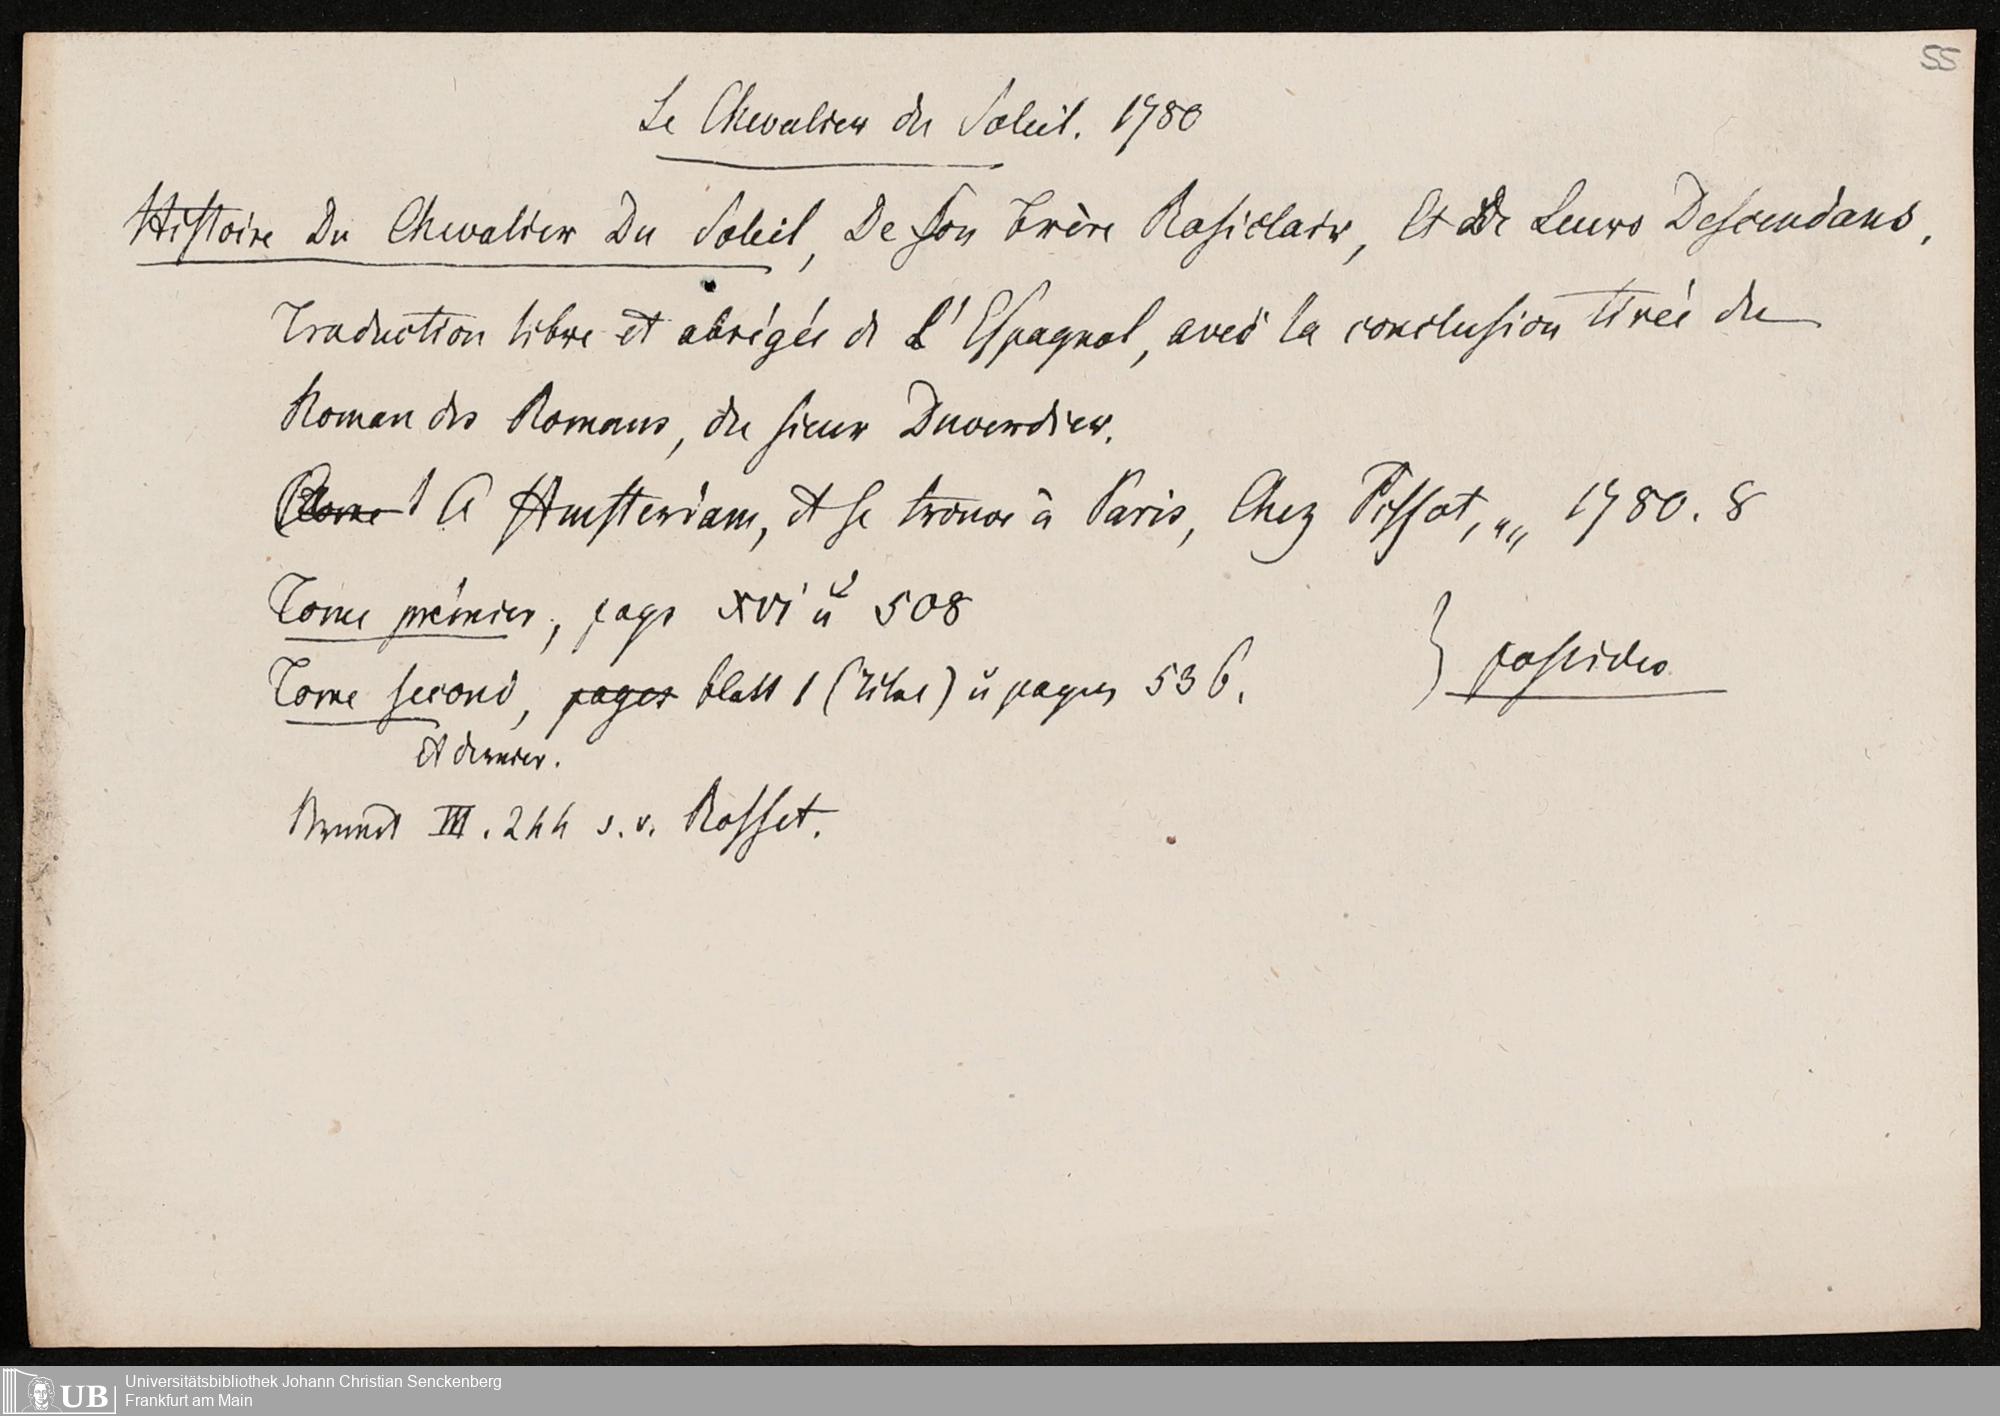 55
Le Chevalier du Soleil. 1780
Histoire Du Chevalier Du Soleil, De Son Frère Rosiclair, Et De Leurs Descendans,
Traduction libre et abrégée de L'Espagnol, avec la conclusion tirée du
Roman des Romans, du sieur Duverdier.
A Amsterdam, et se trouve à Paris, Chez Pissot, „„ 1780. 8
Tome prémier, pags XVI u 508
Tome second, pages blatt 1 (Titel) u pagies 536.
et dernier.
} possideo
Brunet III. 244 s. v. Rosset.
Universitätsbibliothek Johann Christian Senckenberg
Frankfurt am Main
UB